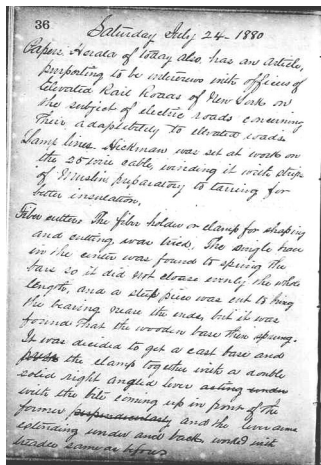 36
Saturday July 24 - 1880
Papers. Herald of today also has an article,
purporting to be interviews with officers of
Elevated Rail Roads of New York on
the subject of electric roads concerning
their adaptability to elevated roads.
Lamp lines. Hickman was set at work on
the 25 wire cable, winding it with strips
of Muslin preparatory to tarring for
better insulation.
Fibre cutters. The fibre holder or clamp for shaping
and cutting was tried. The single bar
in the center was found to spring the
bars so it did not close evenly the whole
length, and a strip piece was cut to bring
the bearing near the ends, but it was
found that the wooden base then sprung.
It was decided to get a cast base and
the clamp together with a double
solid right angled lever acting under
with the bite coming up in front of the
former perpendicularly and the lever arms
extending under and back, worked with
treadle same as before